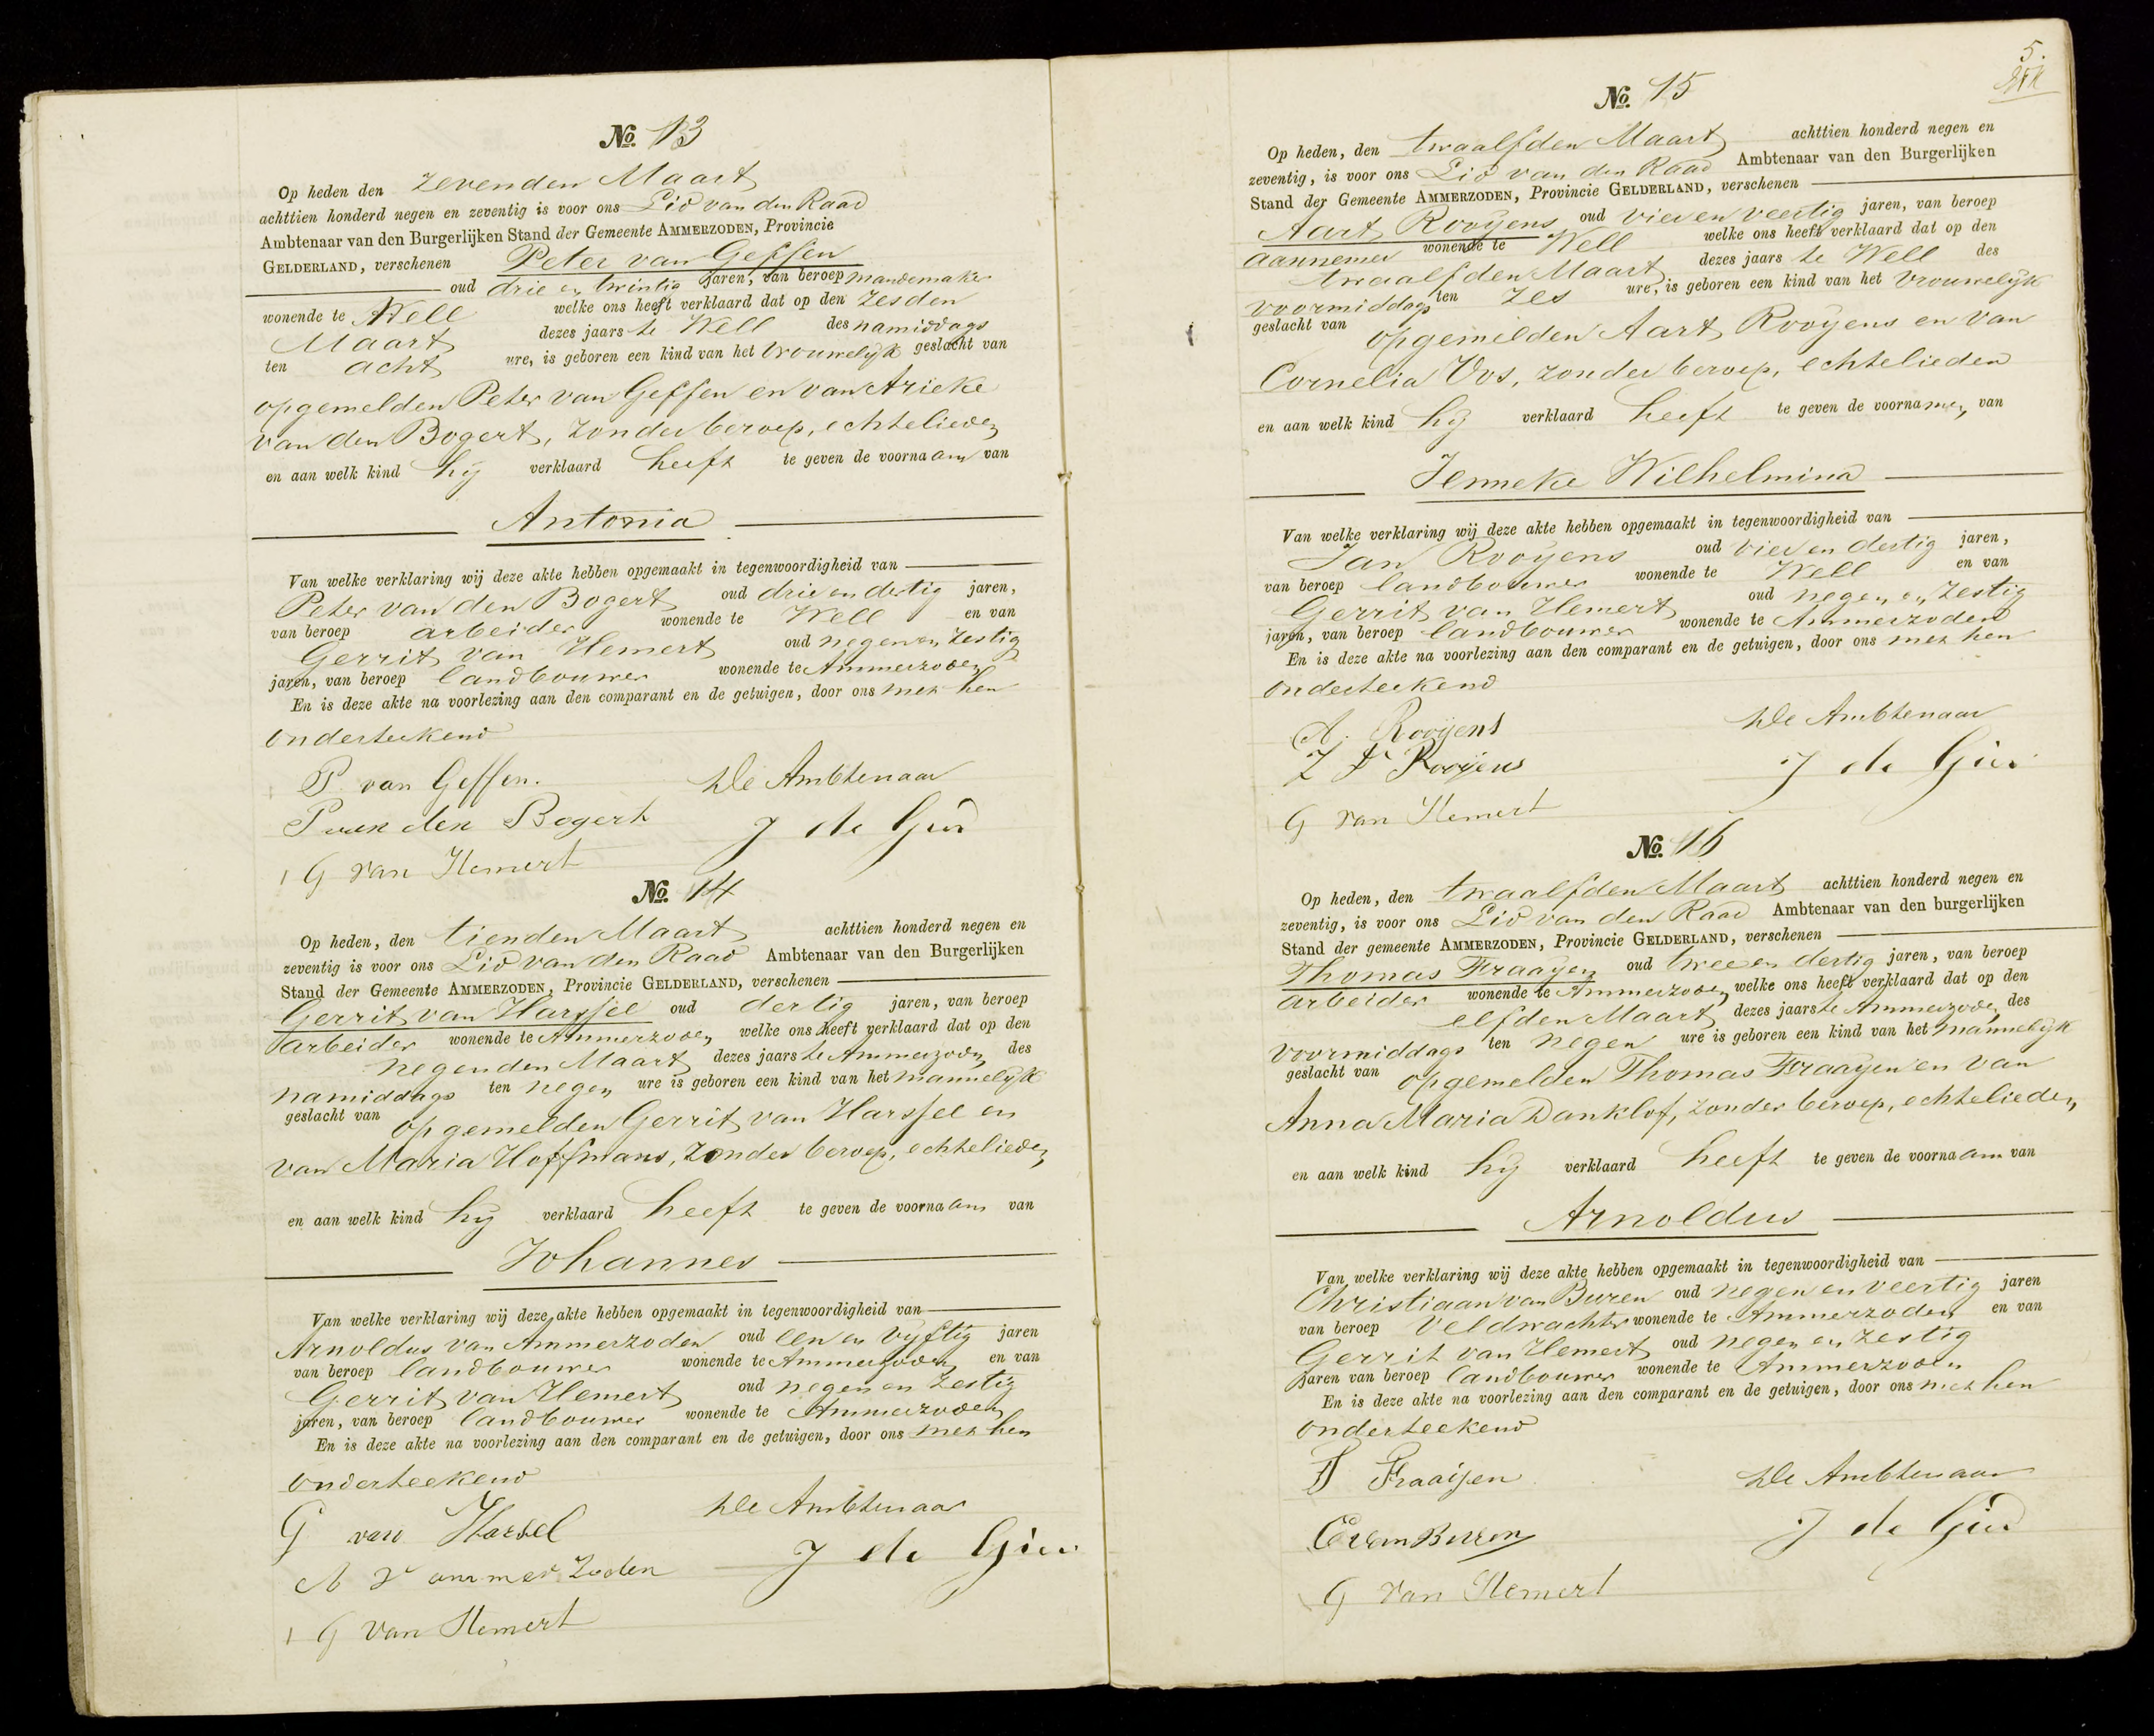 No. 13
Op heden den zevenden Maart
achttien honderd negen en zeventig is voor ons Lid van den Raad
Ambtenaar van den Burgerlijken Stand der Gemeente AMMERZODEN, Provincie
GELDERLAND, verschenen Peter van Geffen
oud drie en twintig jaren, van beroep mandemaker
wonende te Well welke ons heeft verklaard dat op den zesden
Maart dezes jaars te Well des namiddags
ten acht ure, is geboren een kind van het vrouwelijk geslacht van
opgemelden Peter van Geffen en van Arieke
van den Bogert, zonder beroep, echtelieden
en aan welk kind hij verklaard heeft te geven de voornaam van
Antonia
Van welke verklaring wij deze akte hebben opgemaakt in tegenwoordigheid van
Peter van den Bogert oud drie en dertig jaren,
van beroep arbeider wonende te Well en van
Gerrit van Hemert oud negen en zestig
jaren, van beroep landbouwer wonende te Ammerzoden
En is deze akte na voorlezing aan den comparant en de getuigen, door ons met hen
onderteekend
P. van Geffen. De Ambtenaar
P van den Bogert J de
G van Hemert
No. 14
Op heden, den tienden Maart achttien honderd negen en
zeventig is voor ons Lid van den Raad Ambtenaar van den Burgerlijken
Stand der Gemeente AMMERZODEN, Provincie GELDERLAND, verschenen
Gerrit van Harssel oud dertig jaren, van beroep
arbeider wonende te Ammerzoden welke ons heeft verklaard dat op den
negenden Maart dezes jaars te Ammerzoden des
namiddags ten negen ure is geboren een kind van het mannelijk
geslacht van opgemelden Gerrit van Harssel en
van Maria Hoffmans, zonder beroep, echtelieden
en aan welk kind hij verklaard heeft te geven de voornaam van
Johannes
Van welke verklaring wij deze akte hebben opgemaakt in tegenwoordigheid van
Arnoldus van Ammerzoden oud een en vijftig jaren
van beroep landbouwer wonende te Ammerzoden en van
Gerrit van Hemert oud negen en zestig
jaren, van beroep landbouwer wonende te Ammerzoden
En is deze akte na voorlezing aan den comparant en de getuigen, door ons met hen
onderteekend
G van Harsel De Ambtenaar
A v ammerzoden J de
G van Hemert
5.
No. 15
Op heden, den twaalfden Maart achttien honderd negen en
zeventig, is voor ons Lid van den Raad Ambtenaar van den Burgerlijken
Stand der Gemeente AMMERZODEN, Provincie GELDERLAND, verschenen
Aart Rooijens oud vier en veertig jaren, van beroep
aannemer wonende te Well welke ons heeft verklaard dat op den
twaalfden Maart dezes jaars te Well des
voormiddags ten zes ure, is geboren een kind van het vrouwelijk
geslacht van opgemelden Aart Rooijens en van
Cornelia Vos, zonder beroep, echtelieden
en aan welk kind hij verklaard heeft te geven de voornamen van
Jenneke Wilhelmina
Van welke verklaring wij deze akte hebben opgemaakt in tegenwoordigheid van
Jan Rooijens oud vier en dertig jaren,
van beroep landbouwer wonende te Well en van
Gerrit van Hemert oud negen en zestig
jaren, van beroep landbouwer wonende te Ammerzoden
En is deze akte na voorlezing aan den comparant en de getuigen, door ons met hen
onderteekend
A. Rooijens De Ambtenaar
Rooijens J de
G van Hemert
No. 16
Op heden, den twaalfden Maart achttien honderd negen en
zeventig, is voor ons Lid van den Raad Ambtenaar van den burgerlijken
Stand der gemeente AMMERZODEN, Provincie GELDERLAND, verschenen
Thomas Fraayen oud twee en dertig jaren, van beroep
arbeider wonende te Ammerzoden welke ons heeft verklaard dat op den
elfden Maart dezes jaars te Ammerzoden des
voormiddags ten negen ure is geboren een kind van het mannelijk
geslacht van opgemelden Thomas Fraayen en van
Anna Maria Danklof, zonder beroep, echtelieden
en aan welk kind hij verklaard heeft te geven de voornaam van
Arnoldus
Van welke verklaring wij deze akte hebben opgemaakt in tegenwoordigheid van
Christiaan van Buren oud negen en veertig jaren
van beroep veldwachter wonende te Ammerzoden en van
Gerrit van Hemert oud negen en zestig
jaren van beroep landbouwer wonende te Ammerzoden
En is deze akte na voorlezing aan den comparant en de getuigen, door ons met hen
onderteekend
T Fraaijen De Ambtenaar
C van Buren J de
G van Hemert